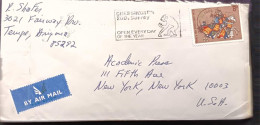 3021 Fairway Drive
Tempe, Arizona
85282
OPEN EVERY DAY
OF THE YEAR
BY AIR MAIL
Academic Press
111 Fifth Ave
New York, New York 10003
U.S.A.